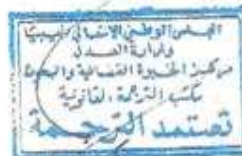 المجلس الوطني الانتقالي ليبيا
وزارة العدل
مركز الخبرة القضائية والبحوث
مكتب الترجمة القانونية
تعتمد الترجمة